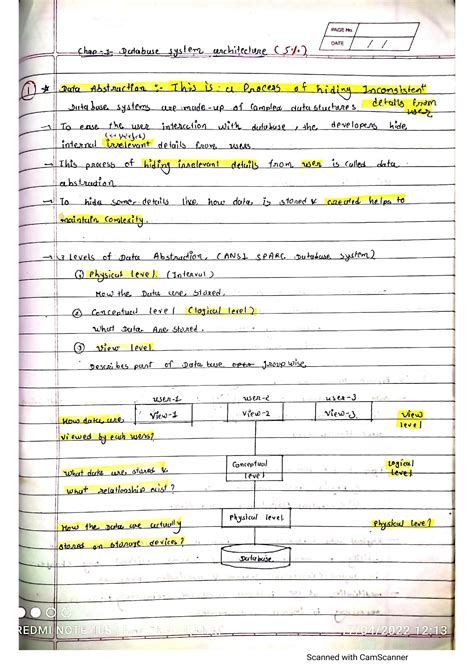 PAGE No.
DATE / /
Chap-1: Database system architecture (5%)
① * Data Abstraction :- This is a Process of hiding Inconsistent
details from
user
Database systems are made-up of complex data structures
→ To ease the user interaction with database, the developers hide
internal irrelevant details from users.
→ This process of hiding irrelevant details from user is called data
abstraction
→ To hide some details like how data is stored & created helps to
maintain Comlexity.
→ 3 Levels of Data Abstraction, (ANSI SPARC Database system)
① Physical level. (Interval)
How the Data are, stored.
② Conceptual level (logical level)
What Data Are stored.
③ View level
Describes part of Database group wise
user-1 user-2 user-3
How data are, View-1 View-2 View-3 View
viewed by each users? level
What data are, stored & Conceptual Logical
level level
What relationship exist?
Physical level
How the Data are actually Physical level
stored on storage devices?
Database
REDMI NOTE 17/04/2022 12:13
Scanned with CamScanner